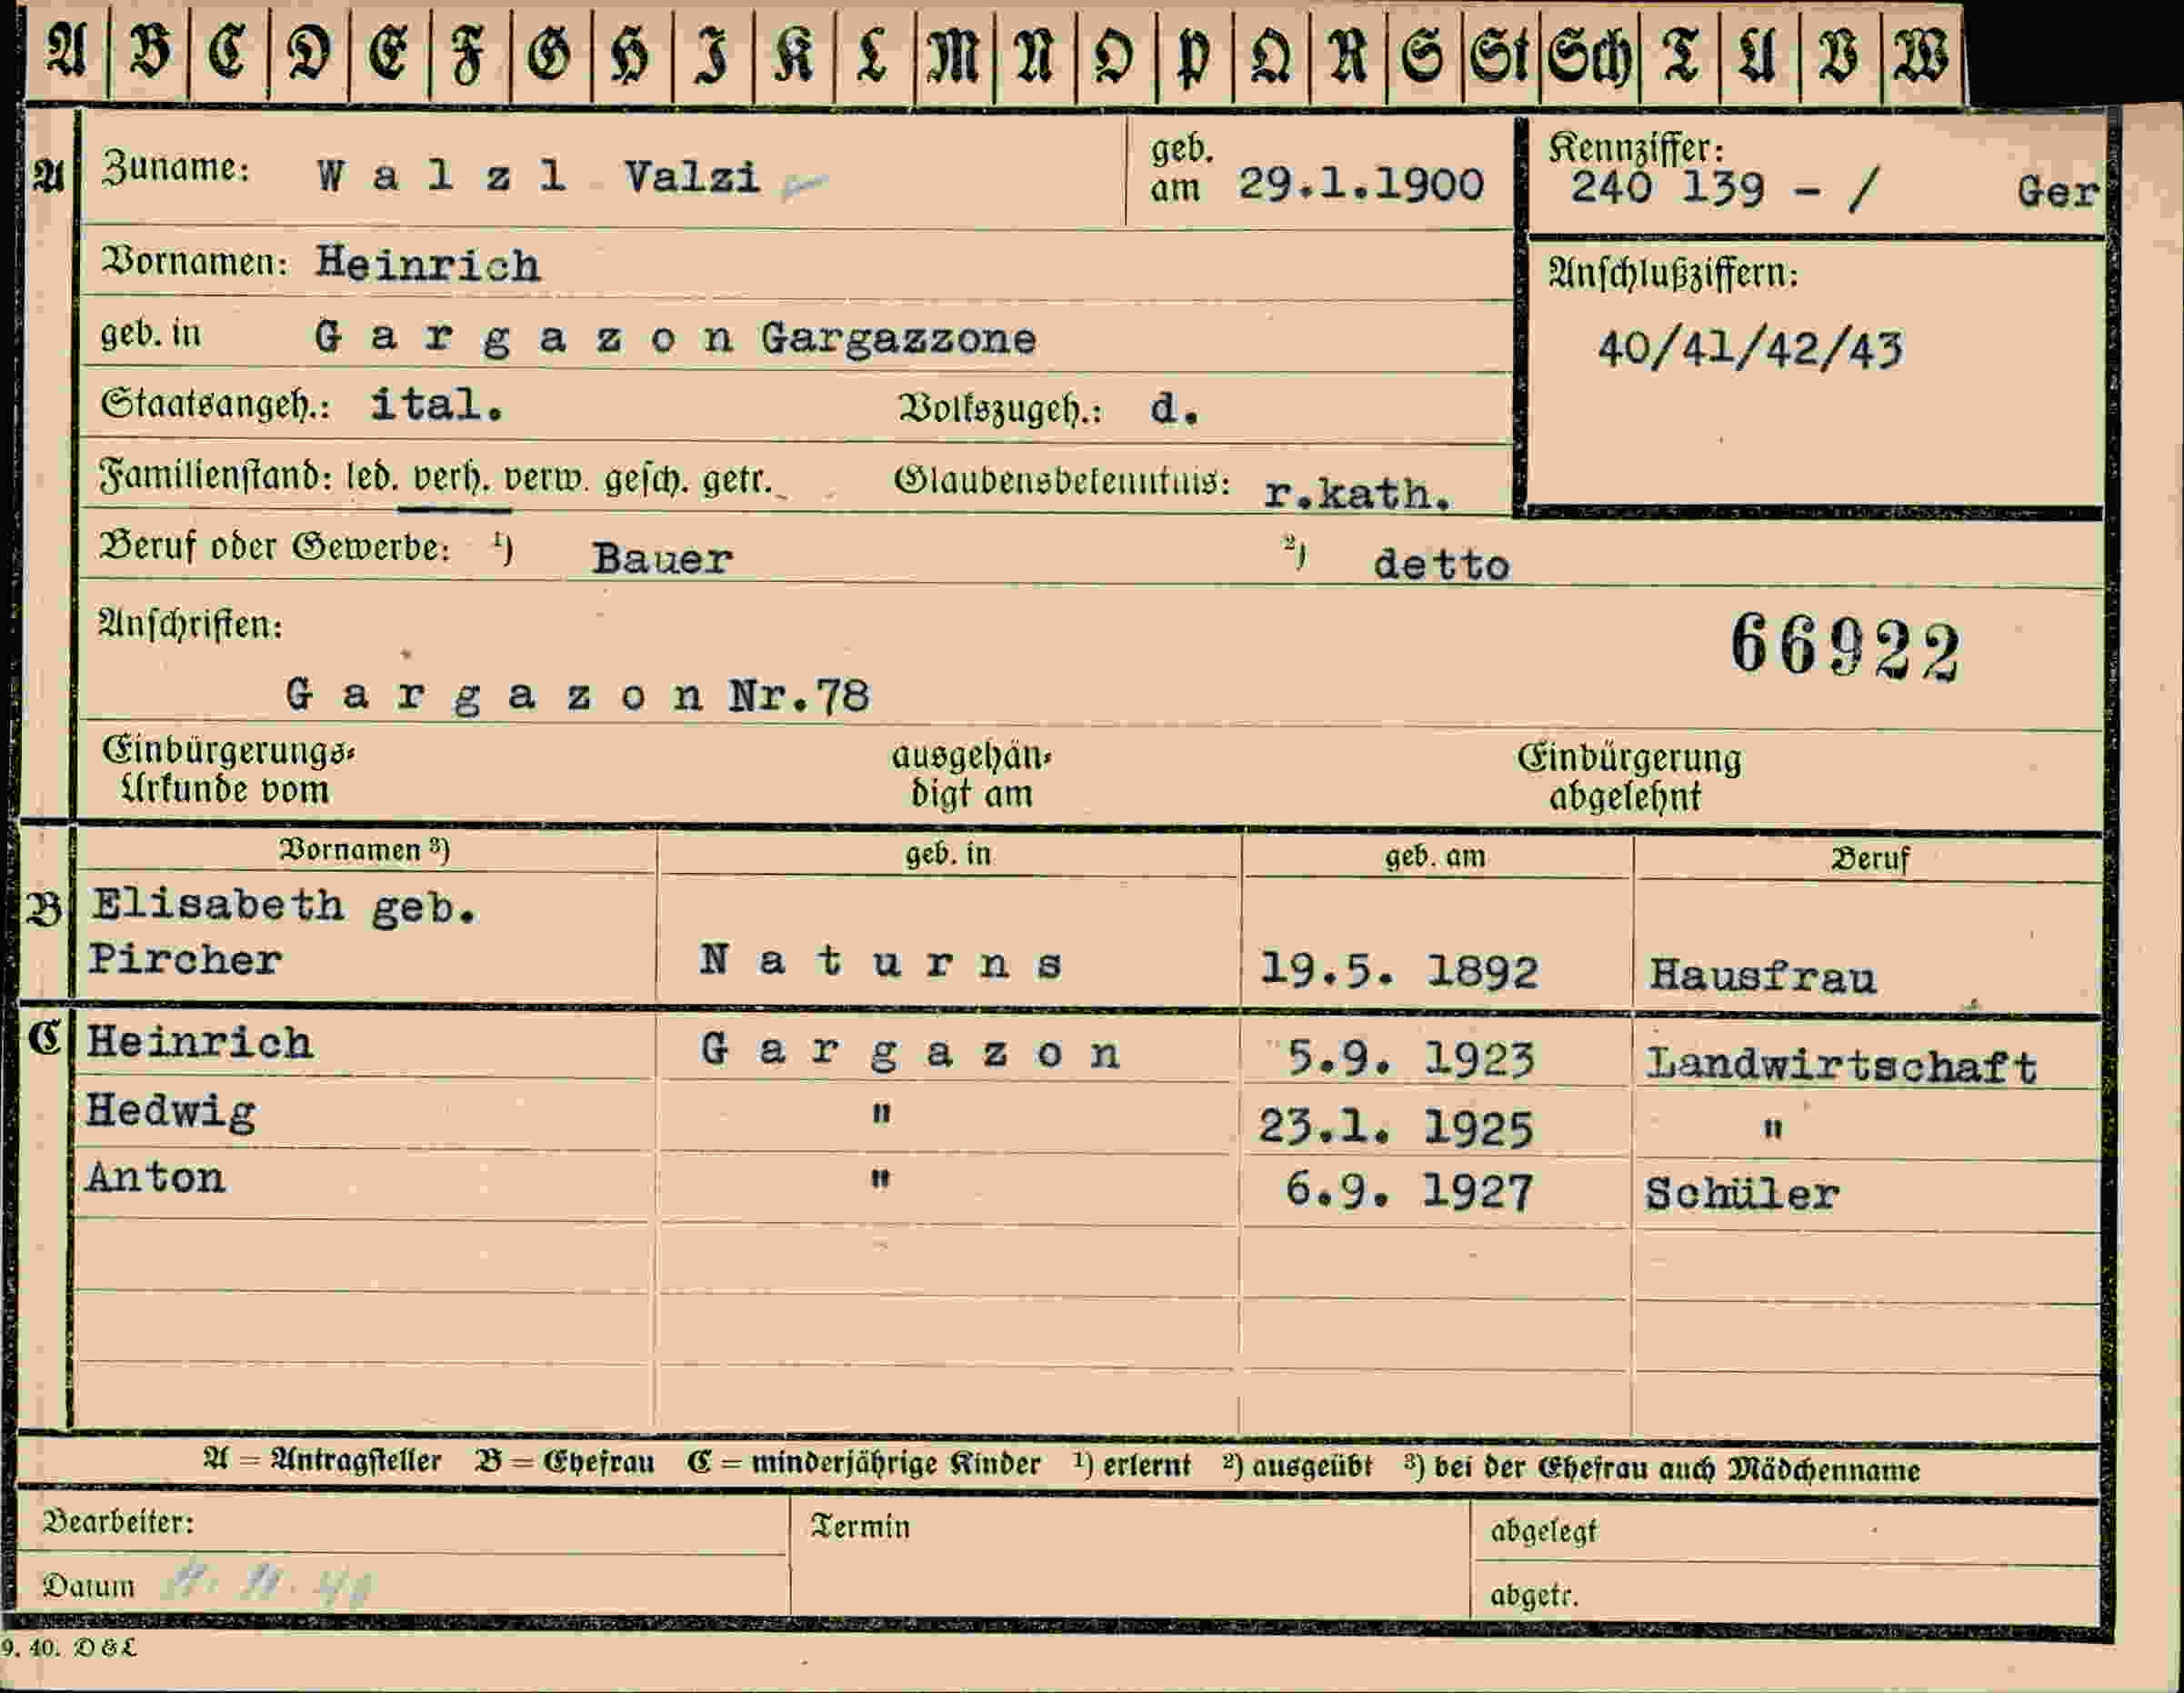 A B C D E F G H I K L M N O P Q R S St Sch T U V W
A Zuname: W a l z l Valzi geb. am 29.1.1900 Kennziffer: 240 139 - / Ger
Vornamen: Heinrich Anschlußziffern:
geb. in G a r g a z o n Gargazzone 40/41/42/43
Staatsangeh.: ital. Volkszugeh.: d.
Familienstand: led. verh. verw. gesch. getr. Glaubensbekenntnis: r.kath.
Beruf oder Gewerbe: 1) Bauer 2) detto
Anschriften: 66922
G a r g a z o n Nr.78
Einbürgerungs- ausgehän- Einbürgerung
Urkunde vom digt am abgelehnt
Vornamen 3) geb. in geb. am Beruf
B Elisabeth geb.
Pircher N a t u r n s 19.5. 1892 Hausfrau
C Heinrich G a r g a z o n 5.9. 1923 Landwirtschaft
Hedwig " 23.1. 1925 "
Anton " 6.9. 1927 Schüler
A = Antragsteller B = Ehefrau C = minderjährige Kinder 1) erlernt 2) ausgeübt 3) bei der Ehefrau auch Mädchenname
Bearbeiter: Termin abgelegt
Datum abgetr.
9. 40. D & L